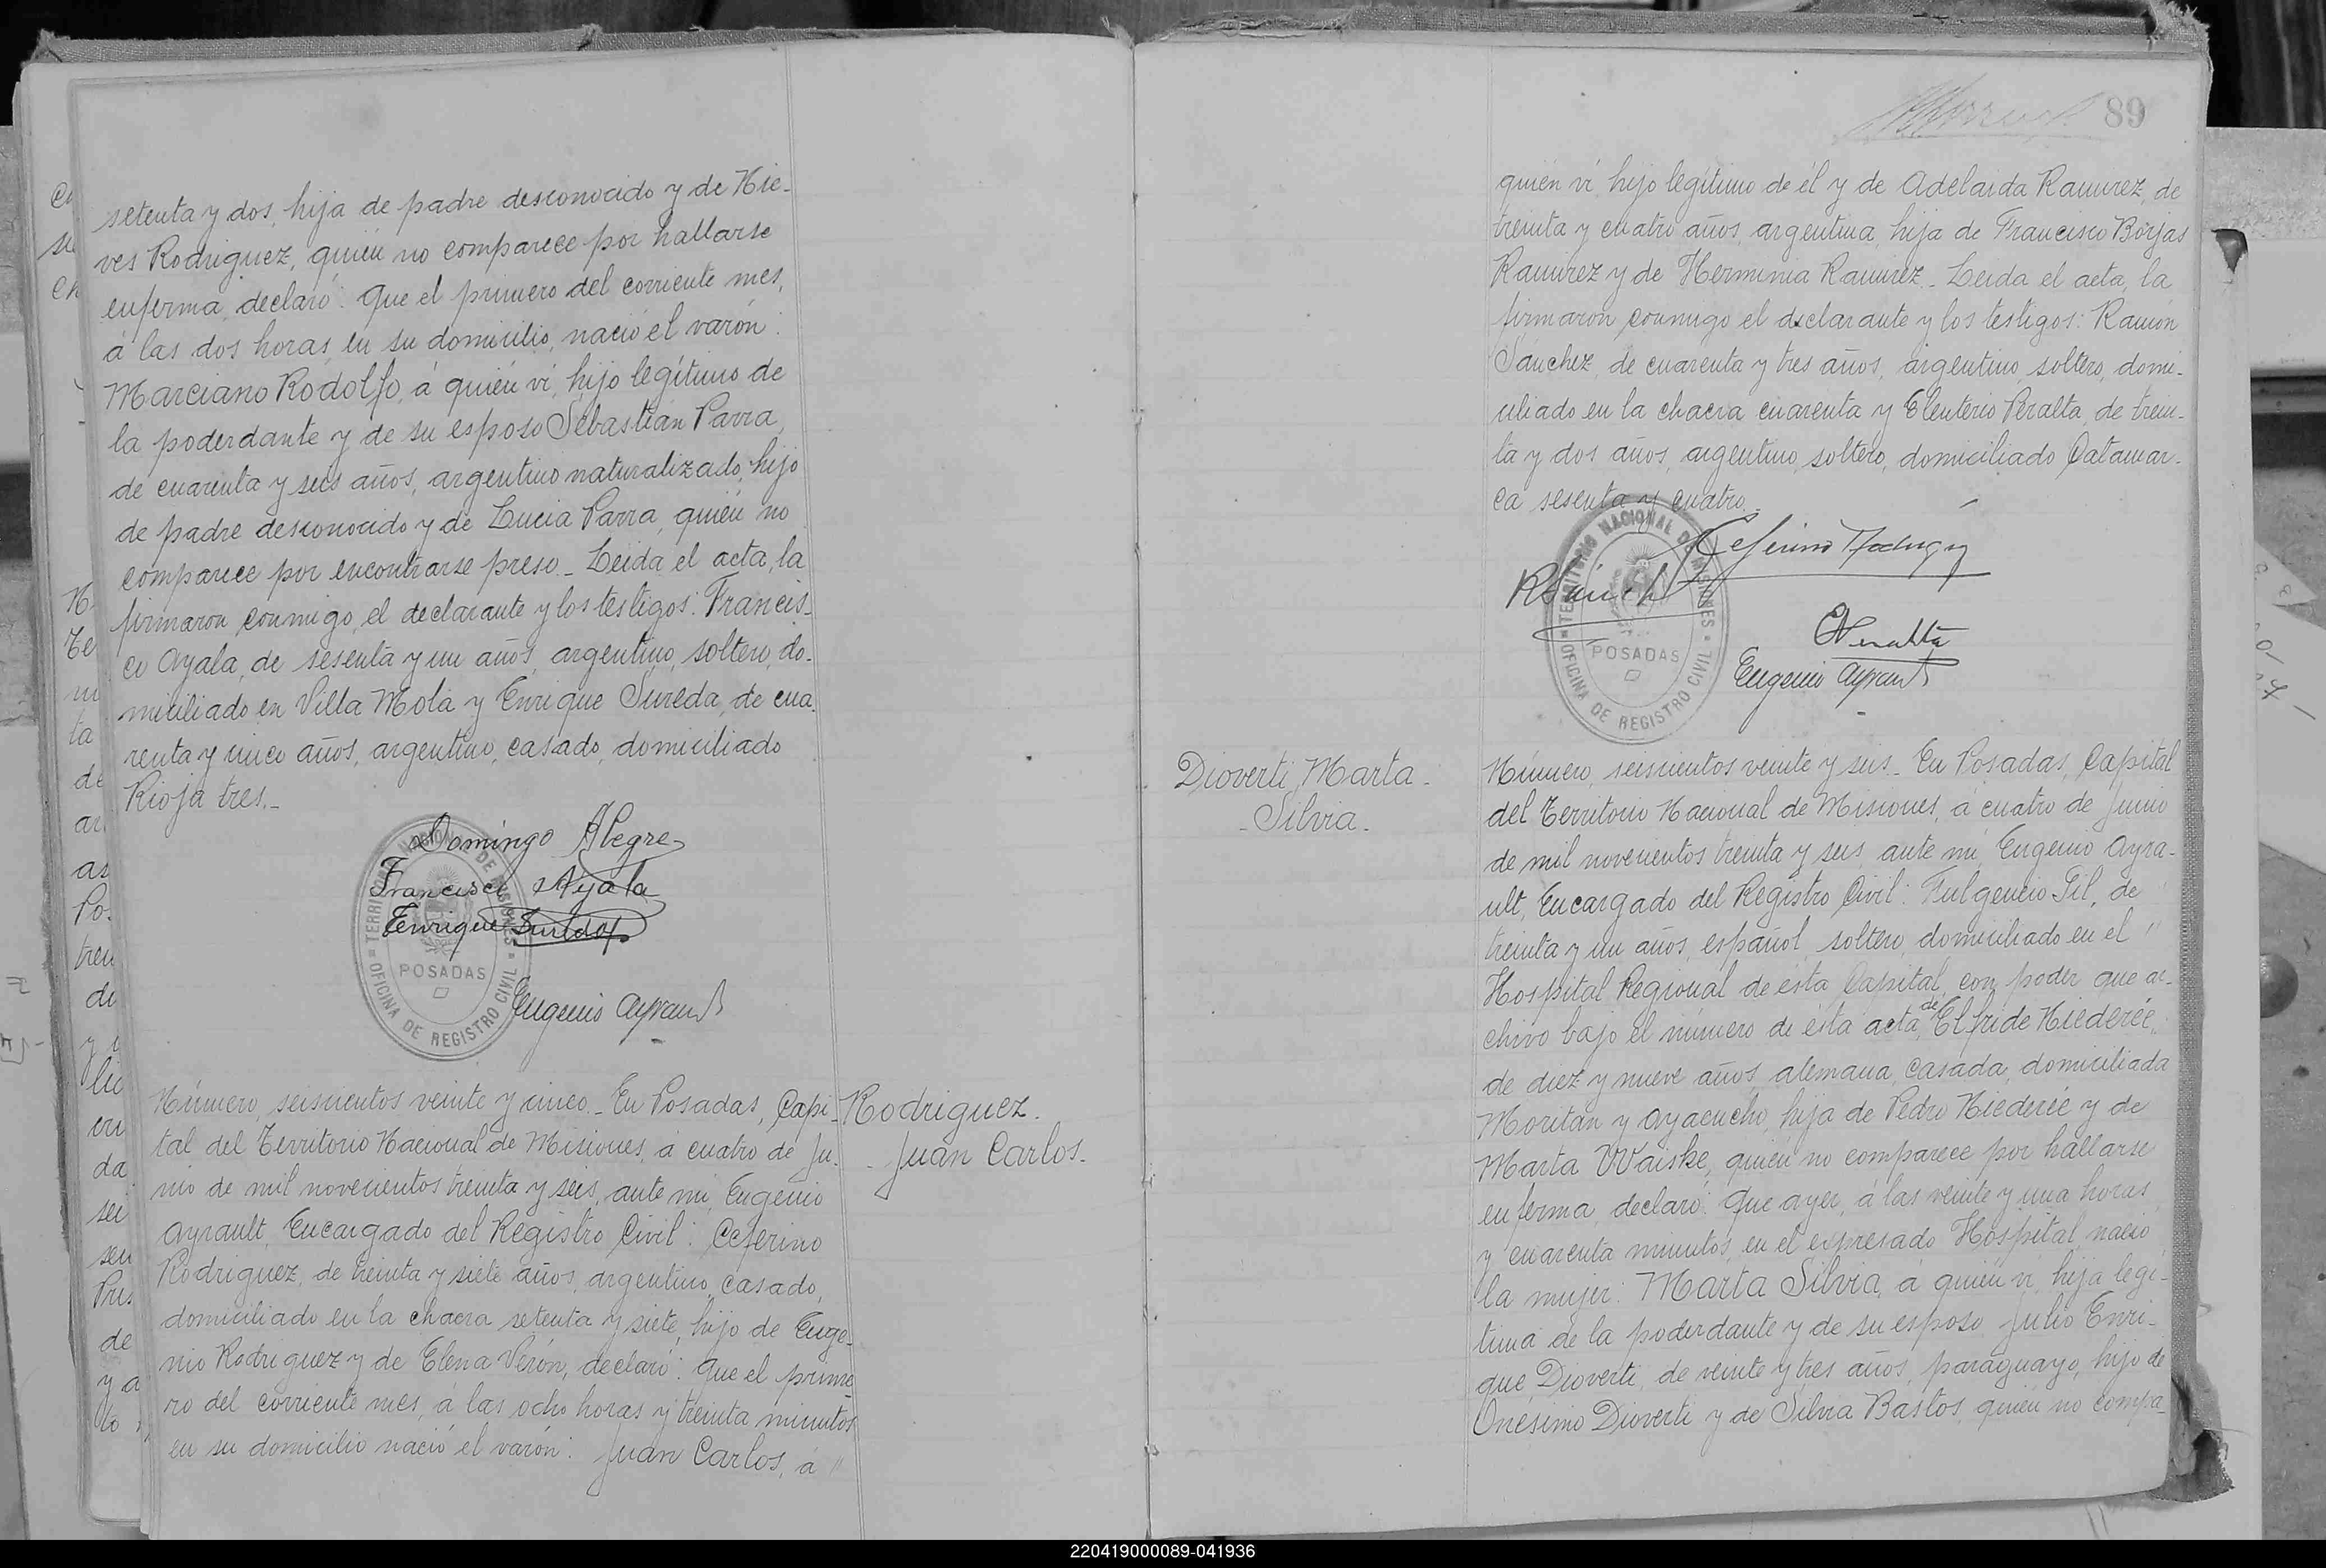 setenta y dos, hija de padre desconocido y de Nie-
ves Rodriguez, quién no comparece por hallarse
enferma, declaró: Que el primero del corriente mes,
á las dos horas, en su domicilio, nació el varón:
Marciano Rodolfo, á quién ví, hijo legítimo de
la poderdante y de su esposo Sebastián Parra,
de cuarenta y seis años, argentino naturalizado, hijo
de padre desconocido y de Lucia Parra, quién no
comparece por encontrarse preso._ Leida el acta, la
firmaron conmigo, el declarante y los testigos: Francis-
co Ayala, de sesenta y un años, argentino, soltero, do-
miciliado en Villa Mola y Enrique Sureda, de cua-
renta y cinco años, argentino, casado, domiciliado
Rioja tres._
Domingo Alegre
Francisco Ayala
Enrique Sureda
TERRITORIO NACIONAL DE MISIONES
POSADAS
OFICINA DE REGISTRO CIVIL
Eugenio Ayrault
Rodriguez.
Juan Carlos.
Número, seiscientos veinte y cinco._ En Posadas, Capi-
tal del Territorio Nacional de Misiones, á cuatro de Ju-
nio de mil novecientos treinta y seis, ante mi, Eugenio
Ayrault, Encargado del Registro Civil: Ceferino
Rodriguez, de treinta y siete años, argentino, casado,
domiciliado en la chacra setenta y siete, hijo de Euge-
nio Rodriguez y de Elena Verón, declaró: Que el prime-
ro del corriente mes, á las ocho horas y treinta minutos
en su domicilio nació el varón: Juan Carlos, á "
89
quién ví, hijo legítimo de él y de Adelaida Ramirez, de
treinta y cuatro años, argentina, hija de Francisco Borjas
Ramirez y de Herminia Ramirez._ Leida el acta, la
firmaron conmigo el declarante y los testigos: Ramón
Sánchez, de cuarenta y tres años, argentino soltero, domi-
ciliado en la chacra cuarenta y Eleuterio Peralta, de trein-
ta y dos años, argentino, soltero, domiciliado Catamar-
ca sesenta y cuatro._
Ceferino Rodriguez
EPeralta
Eugenio Ayrault
TERRITORIO NACIONAL DE MISIONES
POSADAS
OFICINA DE REGISTRO CIVIL
Dioverti, Marta-
-Silvia.
Número, seiscientos veinte y seis._ En Posadas, Capital
del Territorio Nacional de Misiones, á cuatro de Junio
de mil novecientos treinta y seis, ante mi, Eugenio Ayra-
ult, Encargado del Registro Civil: Fulgencio Gil, de
treinta y un años, español, soltero, domiciliado en el "
Hospital Regional de esta Capital, con poder que ar-
chivo bajo el número de esta acta, de Elfride Niederée,
de diez y nueve años, alemana, casada, domiciliada
Moritán y Ayacucho, hija de Pedro Niederée y de
Marta Waiske, quién no comparece por hallarse
enferma, declaró: Que ayer, á las veinte y una horas
y cuarenta minutos, en el expresado Hospital, nació
la mujer: Marta Silvia, á quién ví, hija legí-
tima de la poderdante y de su esposo Julio Enri-
que Dioverti, de veinte y tres años, paraguayo, hijo de
Onésimo Dioverti y de Silvia Bastos, quién no compa-
220419000089-041936